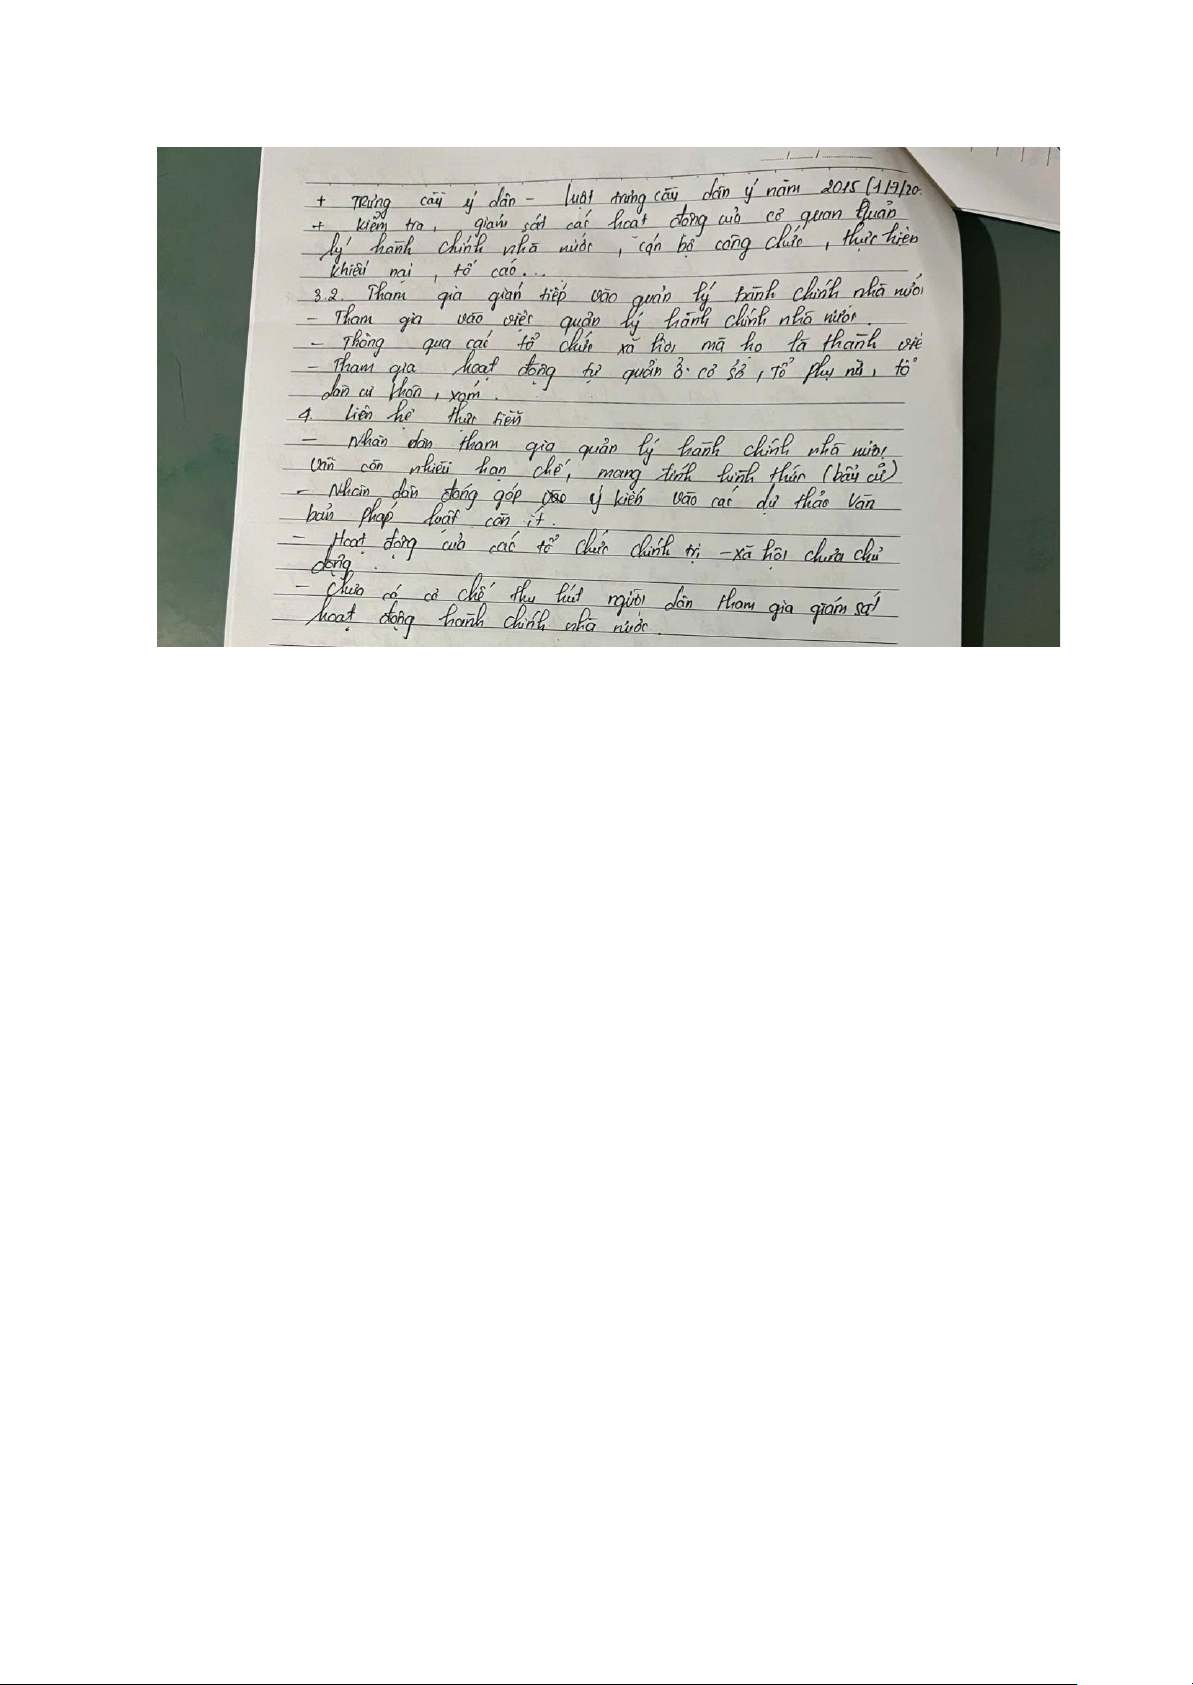 + Trưng cầu ý dân - luật trưng cầu dân ý năm 2015 (1/7/20
+ kiểm tra, giám sát các hoạt động của cơ quan quản
lý hành chính nhà nước, cán bộ công chức, thực hiện
khiếu nại, tố cáo...
3.2. Tham gia gián tiếp vào quản lý hành chính nhà nước
- Tham gia vào việc quản lý hành chính nhà nước.
- Thông qua các tổ chức xã hội mà họ là thành viê
- Tham gia hoạt động tự quản ở cơ sở, Tổ phụ nữ, tổ
dân cư thôn, xóm.
4. Liên hệ thực tiễn
- Nhân dân tham gia quản lý hành chính nhà nước
vẫn còn nhiều hạn chế, mang tính hình thức (bầu cử)
- Nhân dân đóng góp ý kiến vào các dự thảo văn
bản pháp luật còn ít.
- Hoạt động của các tổ chức chính trị - xã hội chưa chủ
động.
- Chưa có cơ chế thu hút người dân tham gia giám sát
hoạt động hành chính nhà nước.